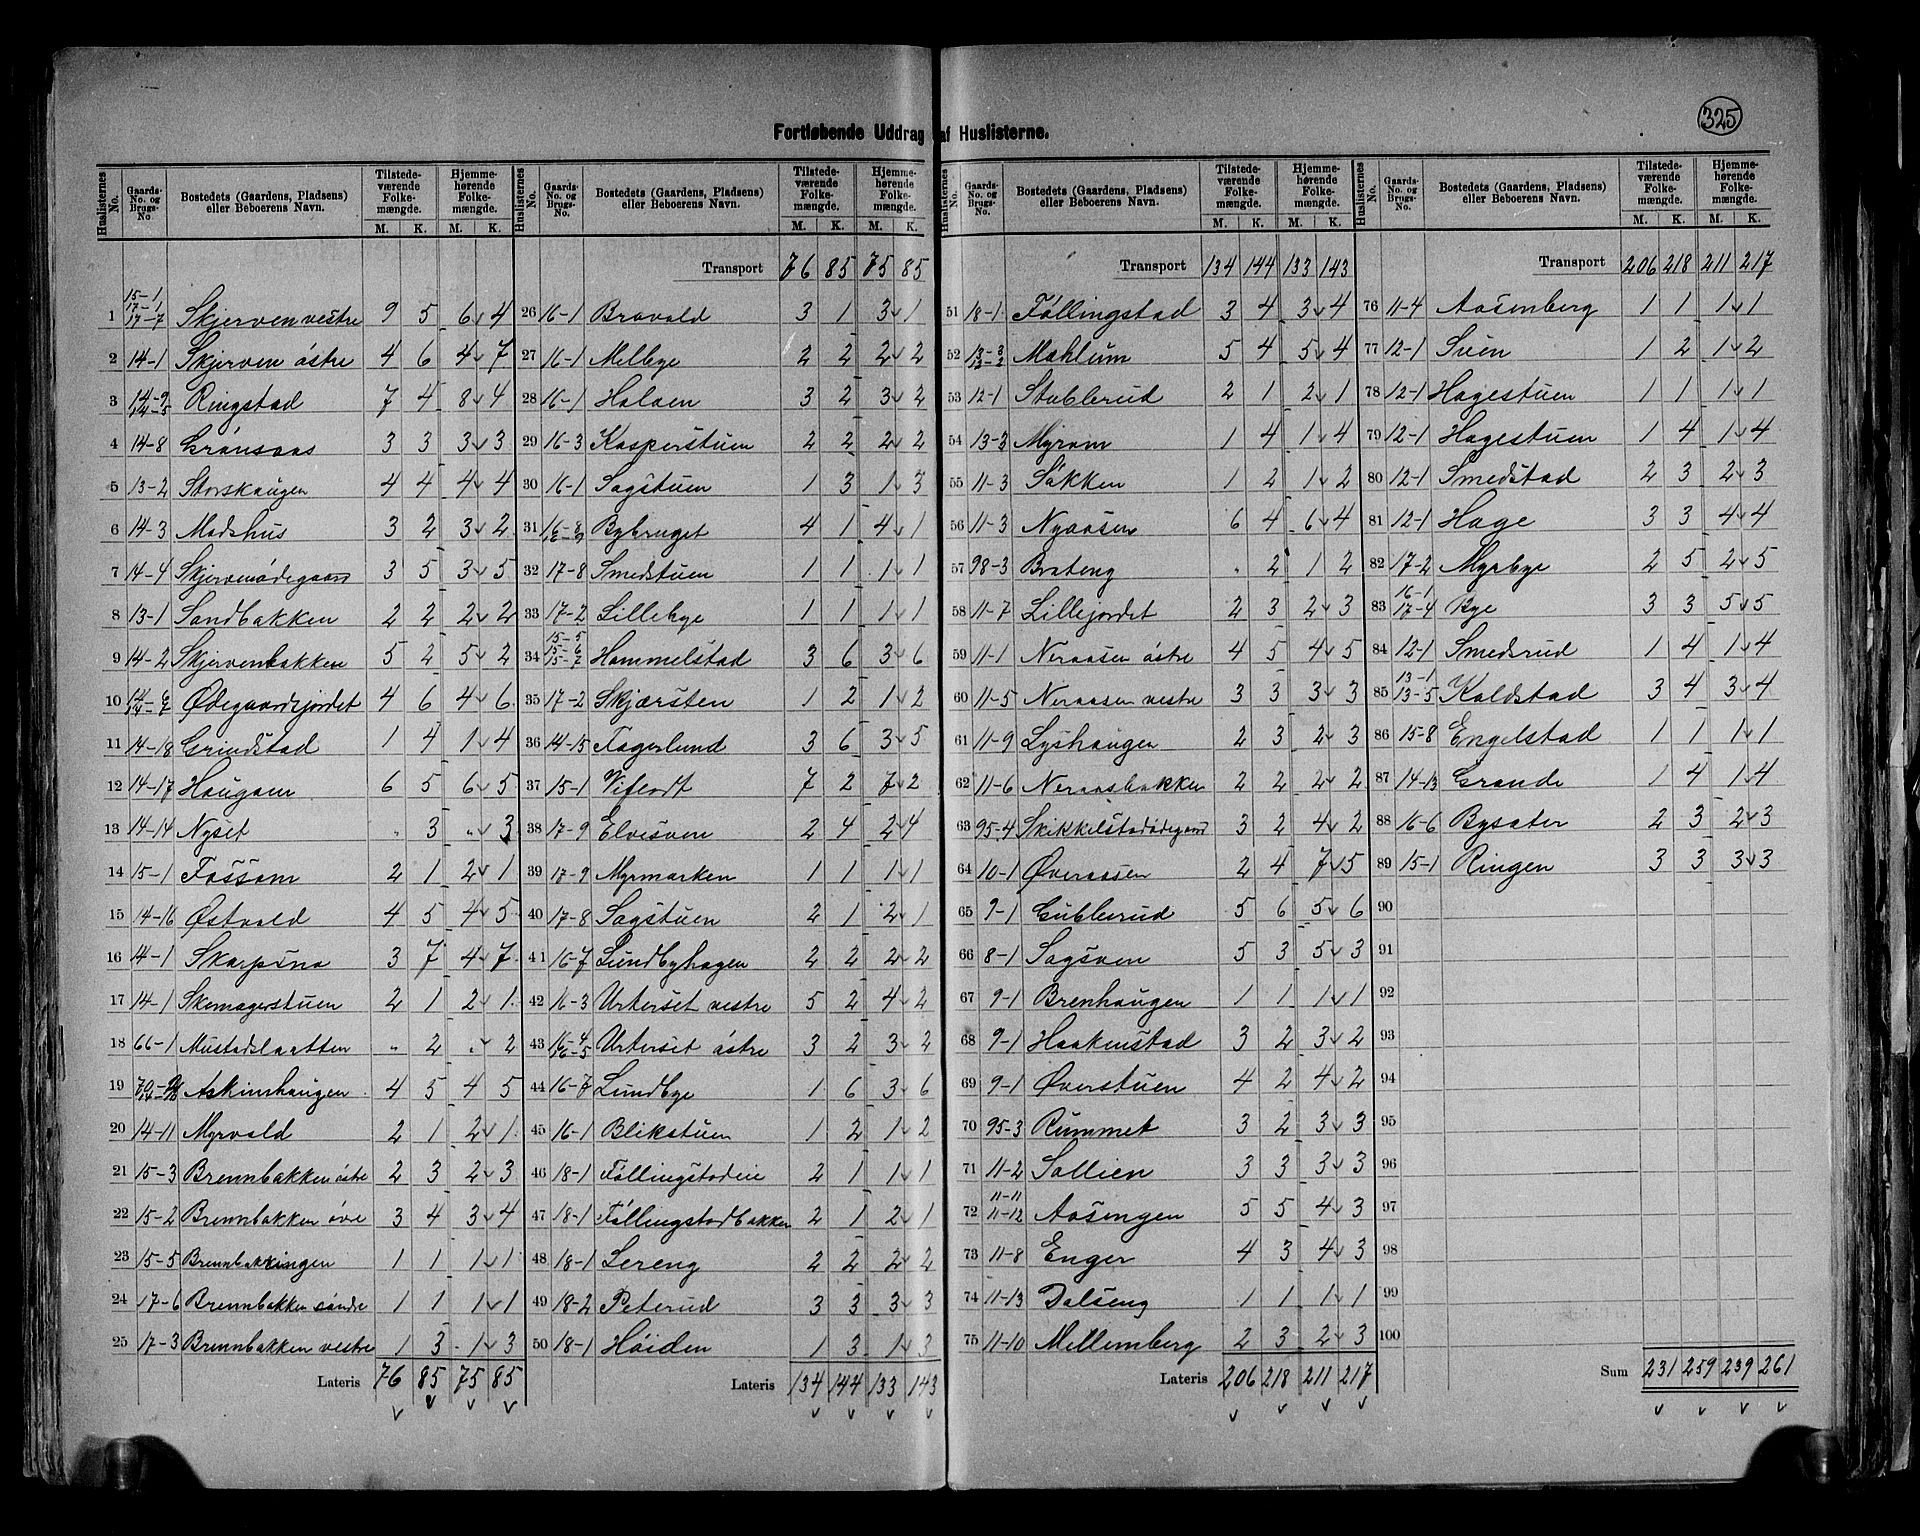 325
Fortløbende Uddrag af Huslisterne.
Huslisternes No. Gaards-No. og Brugs-No. Bostedets (Gaardens, Pladsens) eller Beboerens Navn. Tilstedeværende Folkemængde. M. K. Hjemmehørende Folkemængde. M. K.
1 15-1 17-1 17-7 Skjerven vestre 9 5 6 4
2 14-1 Skjerven østre 4 6 4 7
3 14-9 14-5 Ringstad 7 4 8 4
4 14-8 Grønsaas 3 3 3 3
5 13-2 Storskaugen 4 4 4 4
6 14-3 Madshus 3 2 3 2
7 14-4 Skjervenødegaard 3 5 3 5
8 13-1 Sandbakken 2 2 2 2
9 14-2 Skjervenbakken 5 2 5 2
10 Ødegaardsjordet 4 6 4 6
11 14-18 Grindstad 1 4 1 4
12 14-17 Haugom 6 5 6 5
13 14-14 Nyset " 3 " 3
14 15-1 Fossom 2 1 2 1
15 14-16 Østvold 4 5 4 5
16 14-1 Skarpsno 3 7 4 7
17 14-1 Skomagerstuen 2 1 2 1
18 66-1 Mustadslaatten " 2 " 2
19 Askimhaugen 4 5 4 5
20 14-11 Myrvold 2 1 2 1
21 15-3 Brennbakken østre 2 3 2 3
22 15-2 Brennbakken øvre 3 4 3 4
23 15-5 Brennbakkingen 1 1 1 1
24 17-6 Brennbakken søndre 1 1 1 1
25 17-3 Brennbakken vestre 1 3 1 3
Lateris 76 85 75 85
Huslisternes No. Gaards-No. og Brugs-No. Bostedets (Gaardens, Pladsens) eller Beboerens Navn. Tilstedeværende Folkemængde. M. K. Hjemmehørende Folkemængde. M. K.
Transport 76 85 75 85
26 16-1 Bravold 3 1 3 1
27 16-1 Melbye 2 2 2 2
28 16-1 Holoen 3 2 3 2
29 16-3 Kasperstuen 2 2 2 2
30 16-1 Sagstuen 1 3 1 3
31 16-8 16-9 Bybruget 4 1 4 1
32 17-8 Smedstuen 1 1 1 1
33 17-2 Lillebye 1 1 1 1
34 15-5 15-6 15-7 Hommelstad 3 6 3 6
35 17-2 Skjærsten 1 2 1 2
36 14-15 Fagerlund 3 6 3 5
37 15-1 Vifladt 7 2 7 2
38 17-9 Elvesven 2 4 2 4
39 17-9 Myrmarken 1 1 1 1
40 17-8 Sagstuen 2 1 2 1
41 16-7 Lundbyhagen 2 2 2 2
42 16-3 Urterset vestre 5 2 4 2
43 16-4 16-5 Urterset østre 3 2 3 2
44 16-7 Lundbye 1 6 3 6
45 16-1 Blikstuen 1 2 1 2
46 18-1 Føllingstadeie 2 1 1 1
47 18-1 Føllingstadbakken 2 1 2 1
48 18-1 Lereng 2 2 2 2
49 18-2 Peterud 3 3 3 3
50 18-1 Høiden 1 3 1 3
Lateris 134 144 133 143
Huslisternes No. Gaards-No. og Brugs-No. Bostedets (Gaardens, Pladsens) eller Beboerens Navn. Tilstedeværende Folkemængde. M. K. Hjemmehørende Folkemængde. M. K.
Transport 134 144 133 143
51 18-1 Føllingstad 3 4 3 4
52 13-3 Mæhlum 5 4 5 4
53 12-1 Stublerud 2 1 2 1
54 13-3 Myrom 1 4 1 4
55 11-3 Søkken 1 2 1 2
56 11-3 Nyaasen 6 4 6 4
57 98-3 Brateng " 2 1 2
58 11-7 Lillejordet 2 3 2 3
59 11-1 Neraasen østre 4 5 4 5
60 11-5 Neraasen vestre 3 3 3 3
61 11-9 Lyshaugen 2 3 2 3
62 11-6 Neraasbakken 2 2 2 2
63 95-4 Skikkilstadødegaard 3 2 4 2
64 10-1 Øveraasen 2 4 7 5
65 9-1 Gublerud 5 6 5 6
66 8-1 Sagsven 5 3 5 3
67 9-1 Brenhaugen 1 1 1 1
68 9-1 Haakenstad 3 2 3 2
69 9-1 Øverstuen 4 2 4 2
70 95-3 Rummet 3 2 3 3
71 11-2 Sollien 3 3 3 3
72 11-11 11-12 Aasengen 5 5 4 3
73 11-8 Enger 4 3 4 3
74 11-13 Dalseng 1 1 1 1
75 11-10 Mellemberg 2 3 2 3
Lateris 206 218 211 217
Huslisternes No. Gaards-No. og Brugs-No. Bostedets (Gaardens, Pladsens) eller Beboerens Navn. Tilstedeværende Folkemængde. M. K. Hjemmehørende Folkemængde. M. K.
Transport 206 218 211 217
76 11-4 Aasenberg 1 1 1 1
77 12-1 Sven 1 2 1 2
78 12-1 Hagestuen 1 1 1 1
79 12-1 Hagestuen 1 4 1 4
80 12-1 Smedstad 2 3 2 3
81 12-1 Hage 3 3 4 4
82 17-2 Myrbye 2 5 2 5
83 16-1 17-4 Bye 3 3 5 5
84 12-1 Smedsrud 1 4 1 4
85 13-1 13-5 Koldstad 3 4 3 4
86 15-8 Engelstad 1 1 1 1
87 14-13 Grande 1 4 1 4
88 16-6 Bysater 2 3 2 3
89 15-1 Ringen 3 3 3 3
90
91
92
93
94
95
96
97
98
99
100
Sum 231 259 239 261